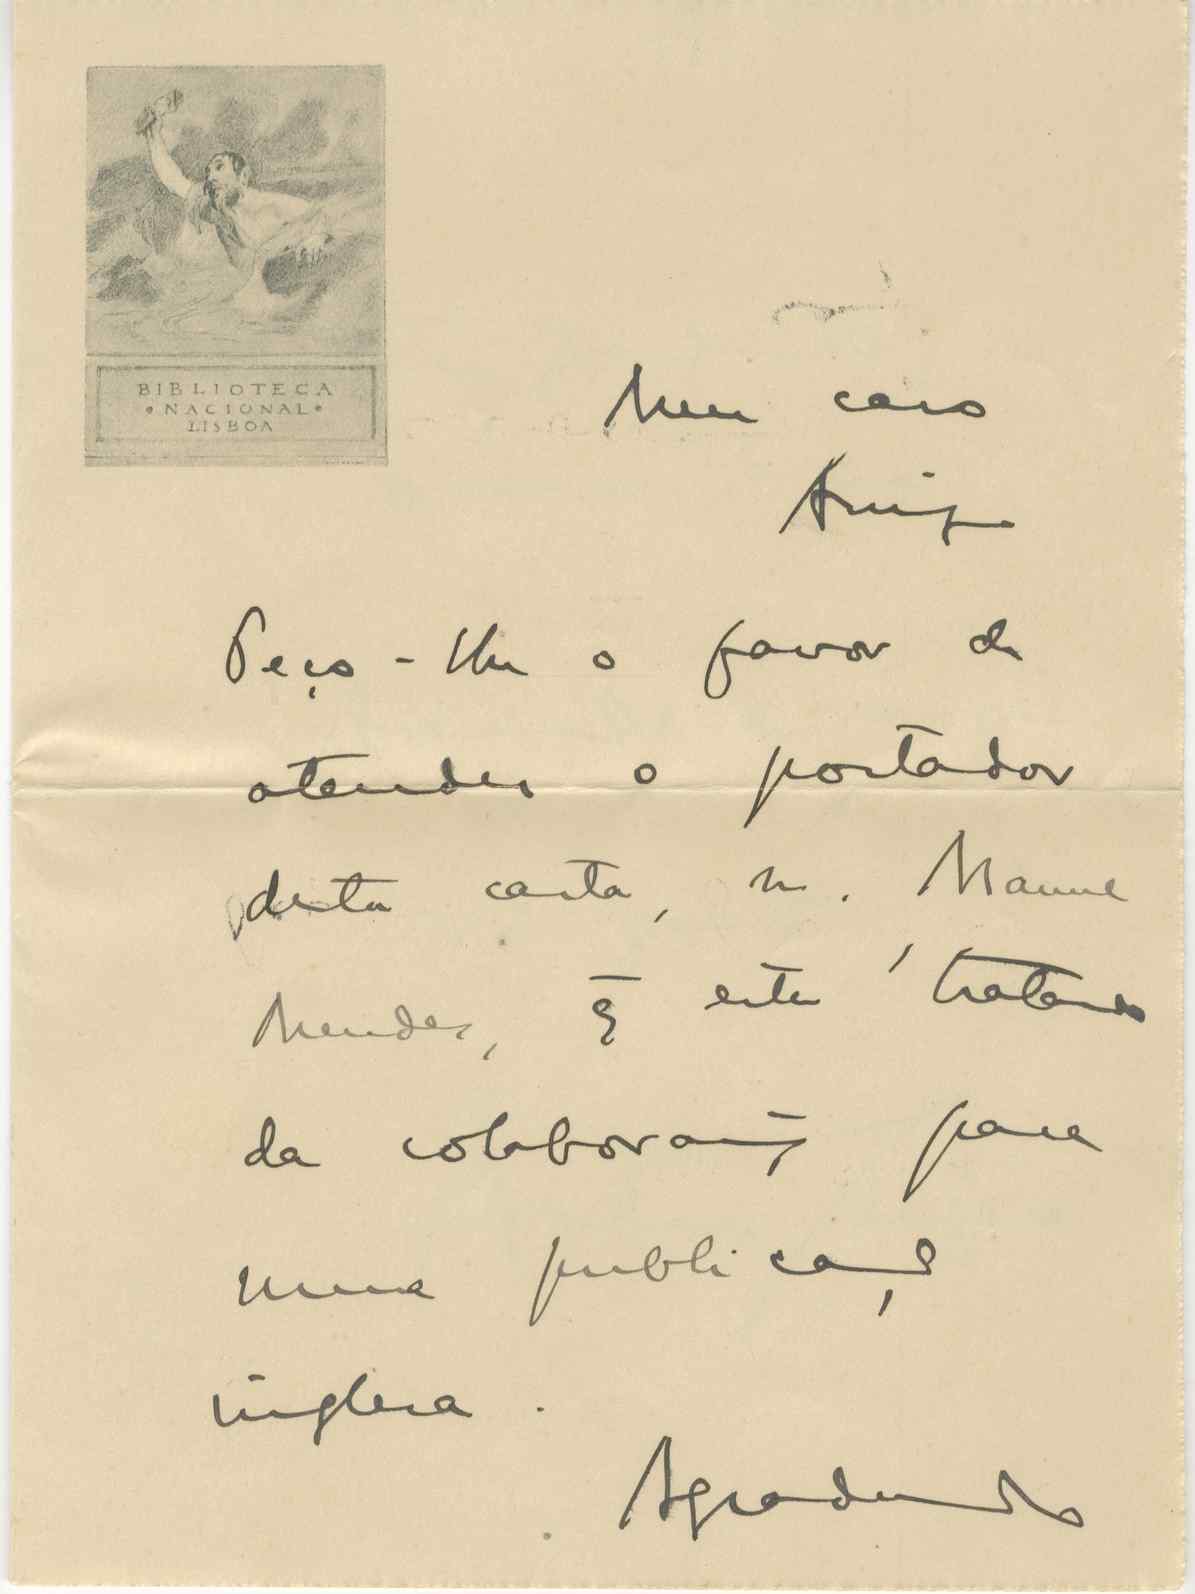 BIBLIOTECA
• NACIONAL •
LISBOA
Meu caro
Amigo
Peço-lhe o favor de
atender o portador
desta carta, sr. Manuel
Mendes, q̄ está tratando
da colaboração para
uma publicação
inglesa.
Agradecendo